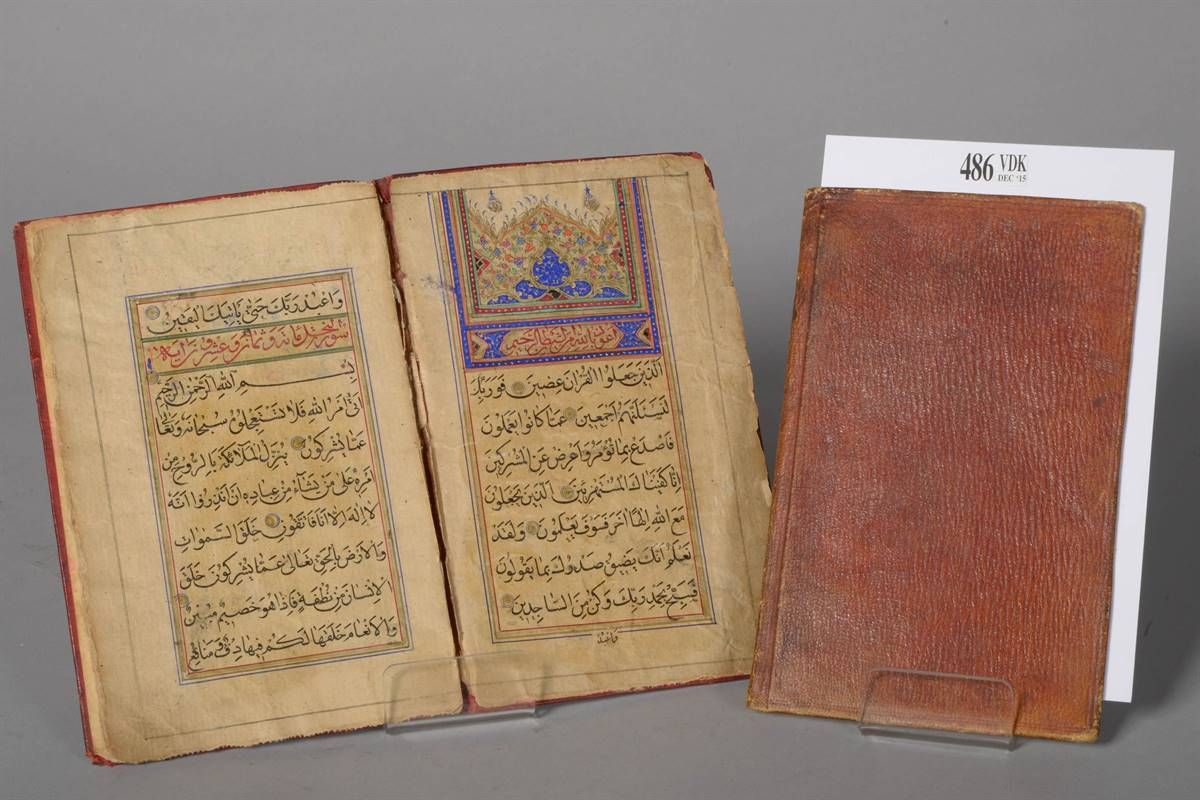 486 VDK
DEC '15
اعوذ بالله من الشيطان الرجيم
الذين جعلوا القران عضين فوربك
لنسئلنهم اجمعين عما كانوا يعملون
فاصدع بما تؤمر واعرض عن المشركين
انا كفيناك المستهزئين الذين يجعلون
مع الله الها اخر فسوف يعلمون ولقد
نعلم انك يضيق صدرك بما يقولون
فسبح بحمد ربك وكن من الساجدين
واعبد
واعبد ربك حتى ياتيك اليقين
سورة النحل مائة وثمان وعشرون اية
بسم الله الرحمن الرحيم
اتى امر الله فلا تستعجلوه سبحانه وتعالى
عما يشركون ينزل الملائكة بالروح من
امره على من يشاء من عباده ان انذروا انه
لا اله الا انا فاتقون خلق السموات
والارض بالحق تعالى عما يشركون خلق
الانسان من نطفة فاذا هو خصيم مبين
والانعام خلقها لكم فيها دفء ومنافع